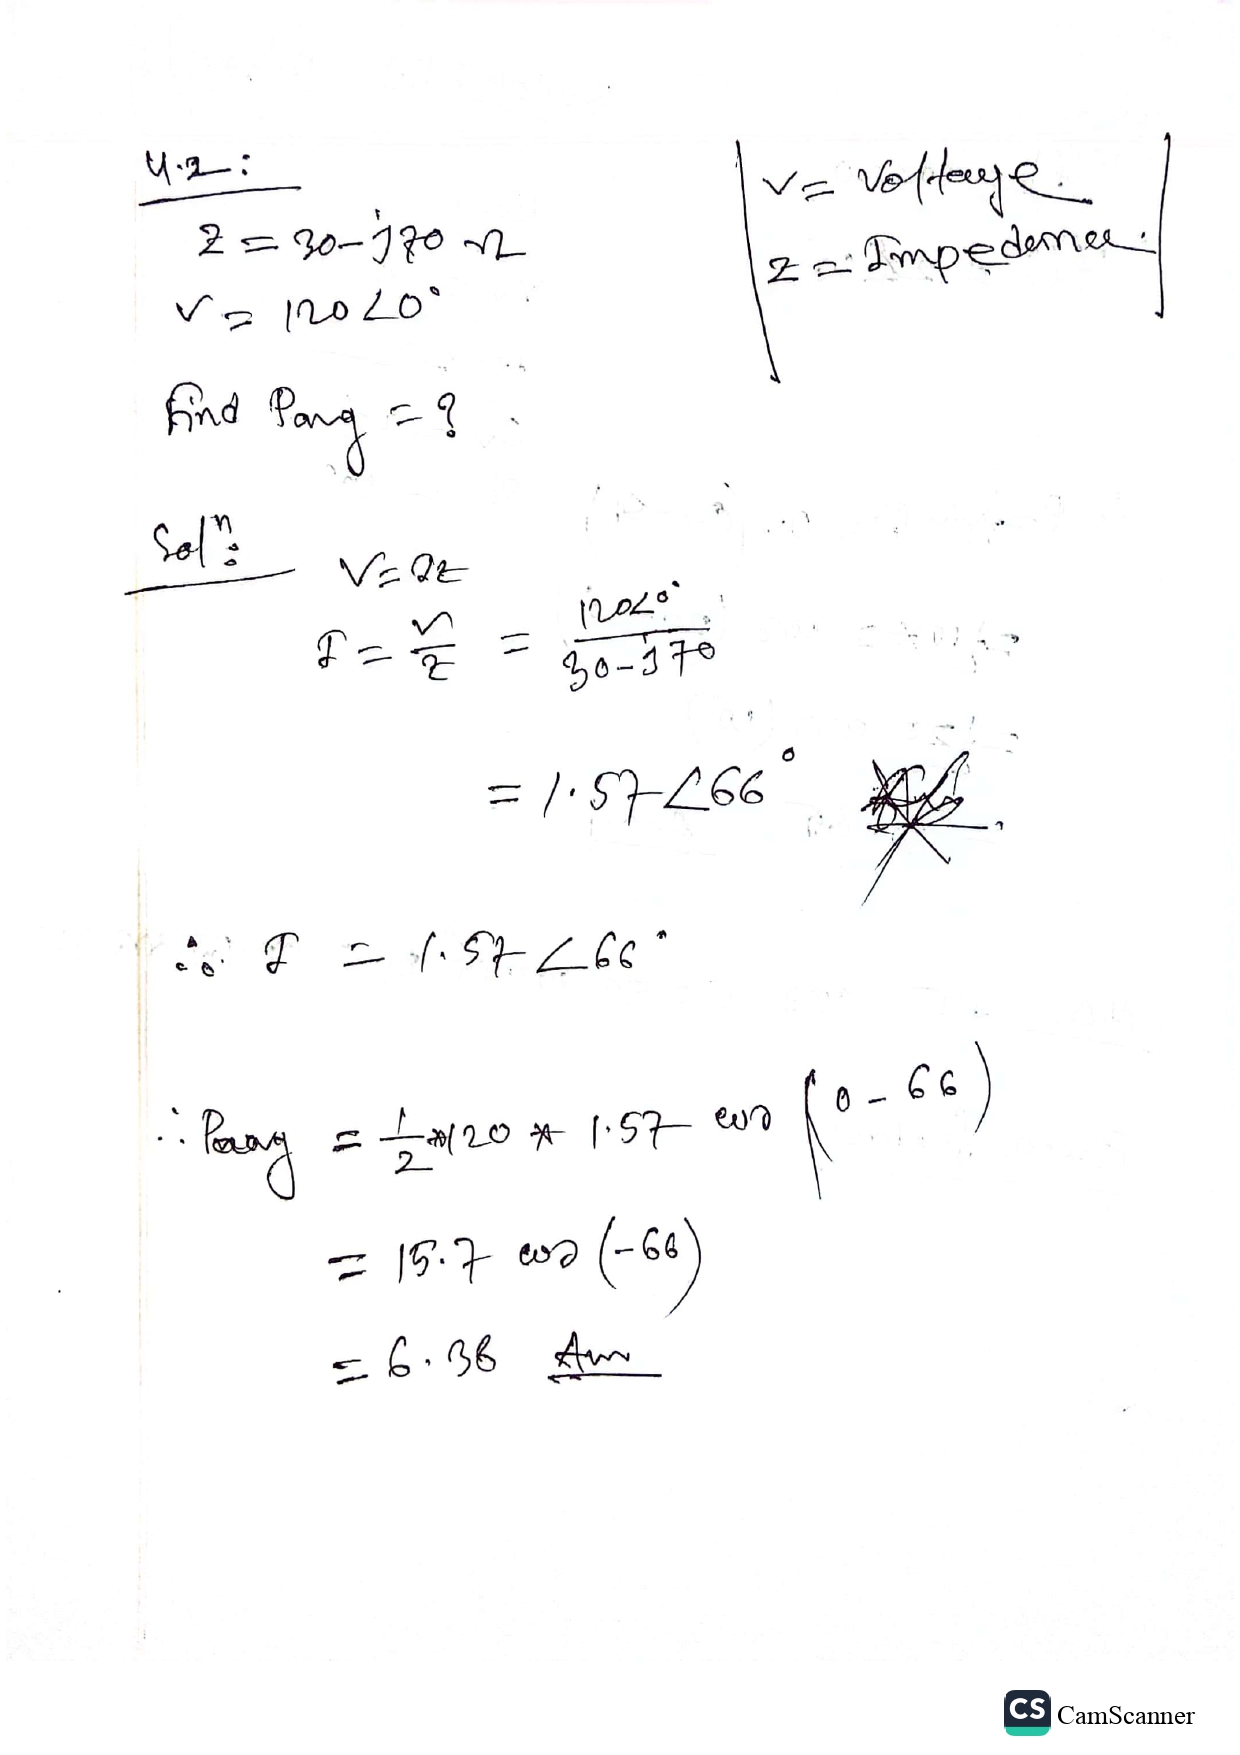 4.2:
Z = 30-j70 Ω
V = 120∠0°
V = Voltage.
Z = Impedence.
find Pavg = ?
Solⁿ:
V = IZ
I = V/Z = 120∠0°/30-j70
= 1.57∠66°
∴ I = 1.57∠66°
∴ Pavg = 1/2 * 120 * 1.57 cos (0-66)
= 15.7 cos (-66)
= 6.38 Ans
CS CamScanner